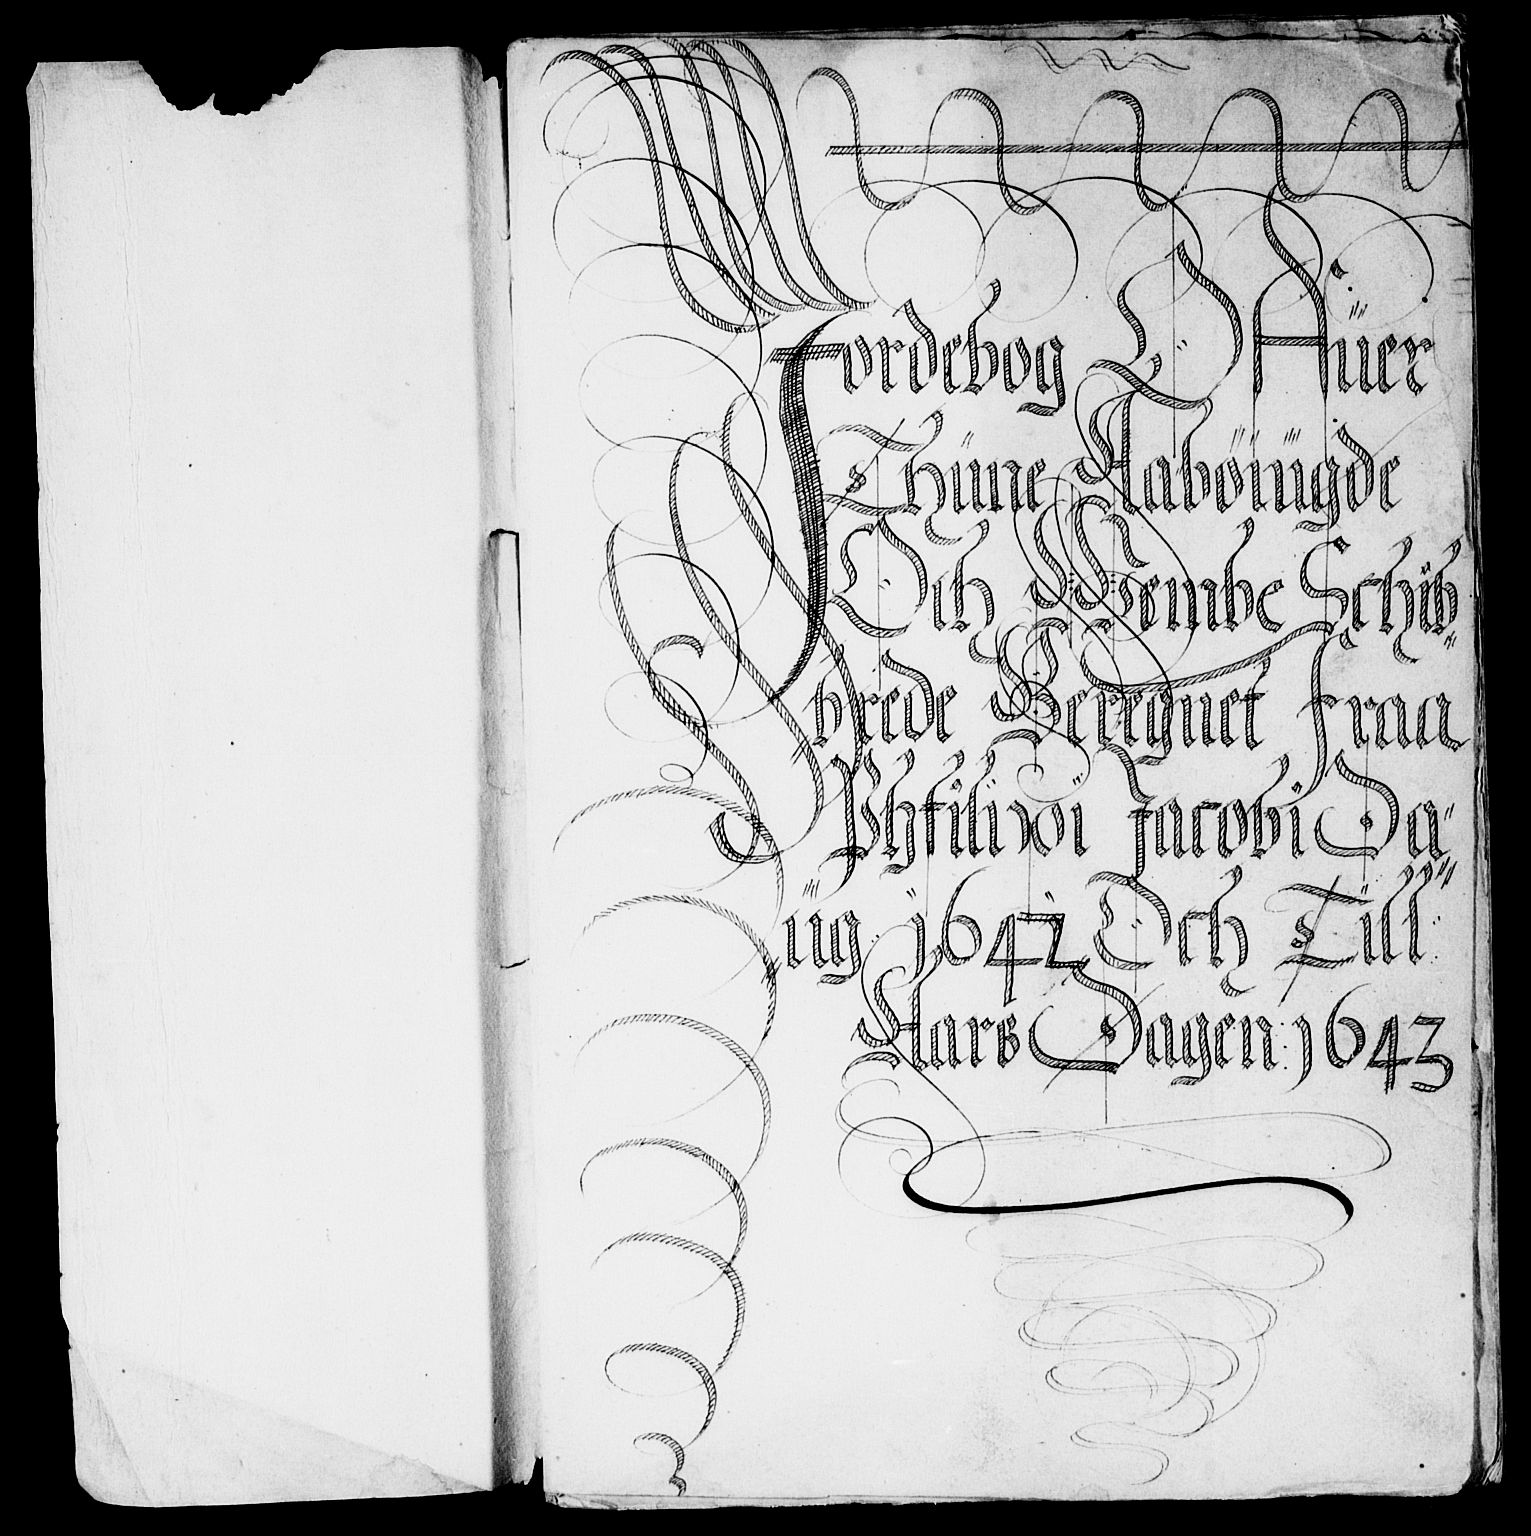 Jordebog Offüer
Thüne Aabøiügde
Och Wembe Schib
hrede Beregnet fraa
Phfilippi Jacobi Da
üg 1642 Och Till
Aars Dagen: 1643